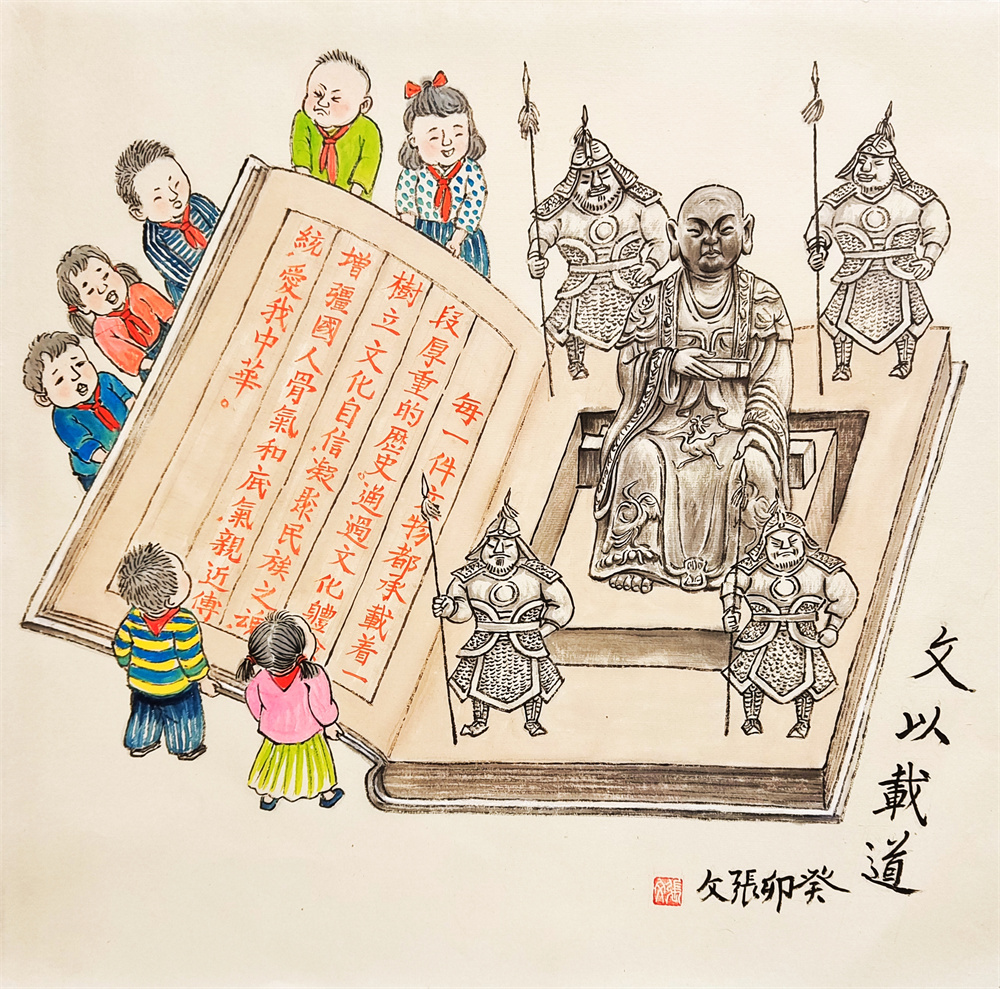 每一件文物都承載着一
段厚重的歷史。通過文化體
樹立文化自信.凝聚民族之魂.
增疆國人骨氣和底氣.親近傳
統.愛我中華。
文以載道
癸卯張文
張文